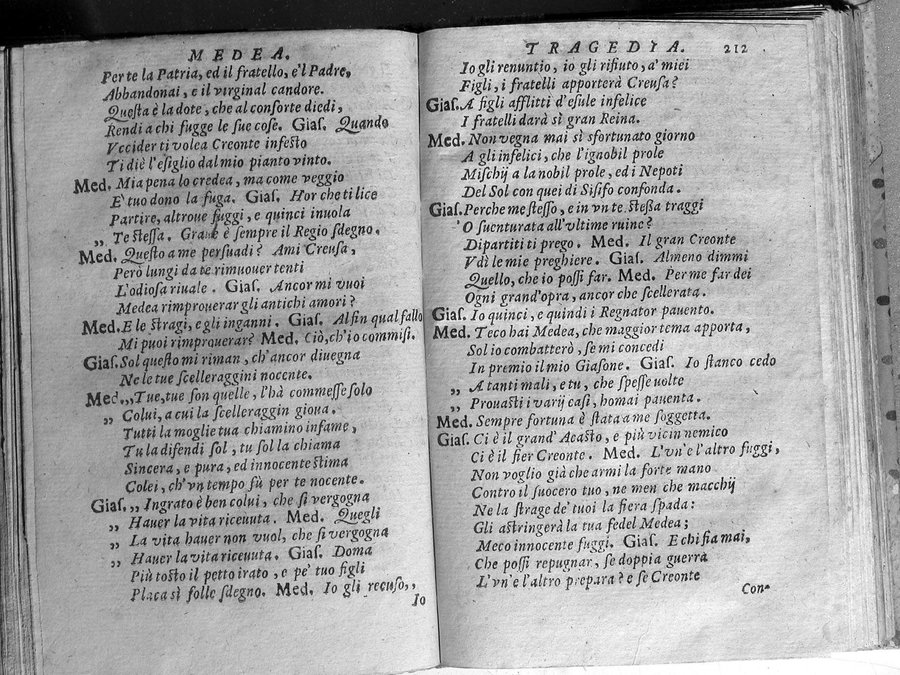 MEDEA.
Per te la Patria, ed il fratello, e'l Padre,
Abbandonai, e il virginal candore.
Questa è la dote, che al consorte diedi,
Rendi a chi fugge le sue cose. Gias. Quando
Vccider ti volea Creonte infesto
Ti diè l'esiglio dal mio pianto vinto.
Med. Mia pena lo credea, ma come veggio
E' tuo dono la fuga. Gias. Hor che ti lice
Partire, altroue fuggi, e quinci inuola
„ Te stessa. Graue è sempre il Regio sdegno.
Med. Questo a me persuadi? Ami Creusa,
Però lungi da te rimuouer tenti
L'odiosa riuale. Gias. Ancor mi vuoi
Medea rimprouerar gli antichi amori?
Med. E le stragi, e gli inganni. Gias. Al fin qual fallo
Mi puoi rimprouerar? Med. Ciò, ch'io commisi.
Gias. Sol questo mi riman, ch'ancor diuegna
Ne le tue scelleraggini nocente.
Med. „ Tue, tue son quelle, l'hà commesse solo
„ Colui, a cui la scelleraggin gioua.
Tutti la moglie tua chiamino infame,
Tu la difendi sol, tu sol la chiama
Sincera, e pura, ed innocente stima
Colei, ch'vn tempo fù per te nocente.
Gias. „ Ingrato è ben colui, che si vergogna
„ Hauer la vita riceuuta. Med. Quegli
„ La vita hauer non vuol, che si vergogna
„ Hauer la vita riceuuta. Gias. Doma
Più tosto il petto irato, e pe' tuo figli
Placa sì folle sdegno. Med. Io gli recuso,
Io
TRAGEDIA. 212
Io gli renuntio, io gli rifiuto, a' miei
Figli, i fratelli apporterà Creusa?
Gias. A figli afflitti d'esule infelice
I fratelli darà sì gran Reina.
Med. Non vegna mai sì sfortunato giorno
A gli infelici, che l'ignobil prole
Mischij a la nobil prole, ed i Nepoti
Del Sol con quei di Sisifo confonda.
Gias. Perche me stesso, e in vn te stessa traggi
O suenturata all'vltime ruine?
Dipartiti ti prego. Med. Il gran Creonte
Vdì le mie preghiere. Gias. Almeno dimmi
Quello, che io possi far. Med. Per me far dei
Ogni grand'opra, ancor che scellerata.
Gias. Io quinci, e quindi i Regnator pauento.
Med. Teco hai Medea, che maggior tema apporta,
Sol io combatterò, se mi concedi
In premio il mio Giasone. Gias. Io stanco cedo
„ A tanti mali, e tu, che spesse uolte
„ Prouasti i varij casi, homai pauenta.
Med. Sempre fortuna è stata a me soggetta.
Gias. Ci è il grand' Acasto, e più vicin nemico
Ci è il fier Creonte. Med. L'vn' e l'altro fuggi,
Non voglio già che armi la forte mano
Contro il suocero tuo, ne men che macchij
Ne la strage de' tuoi la fiera spada:
Gli astringerà la tua fedel Medea;
Meco innocente fuggi. Gias. E chi fia mai,
Che possi repugnar, se doppia guerra
L'vn' e l'altro prepara? e se Creonte
Con-